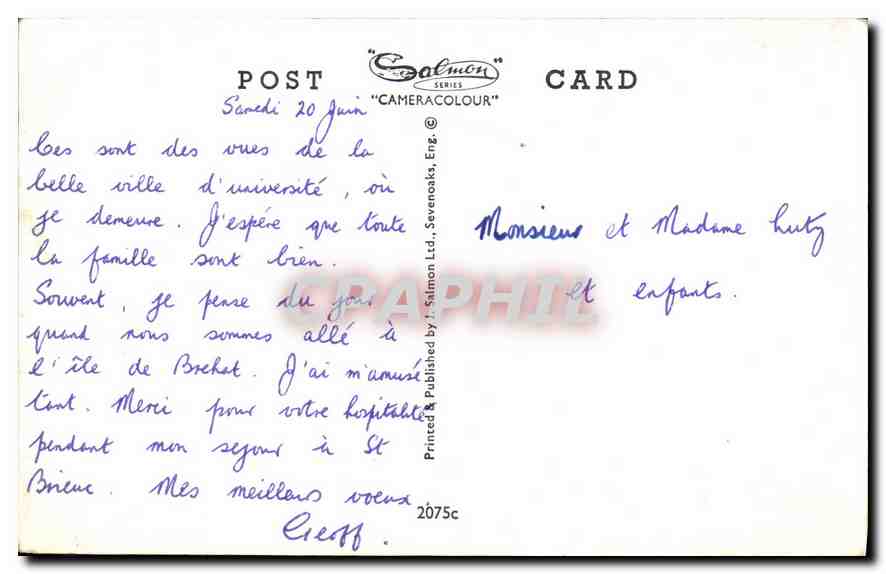 POST "Salmon" CARD
SERIES
"CAMERACOLOUR"
Samedi 20 Juin
Ces sont des vues de la
belle ville d'université, où
je demeure. J'espére que toute
la famille sont bien.
Souvent, je pense du jour
quand nous sommes allé à
l'île de Brehat. J'ai m'amusé
tant. Merci pour votre hospitalité
pendant mon sejour à St
Brieuc. Mes meilleurs voeux
Geoff.
Monsieur et Madame Luty
et enfants.
Printed & Published by J. Salmon Ltd., Sevenoaks, Eng. ©
2075c
CPAPHIL